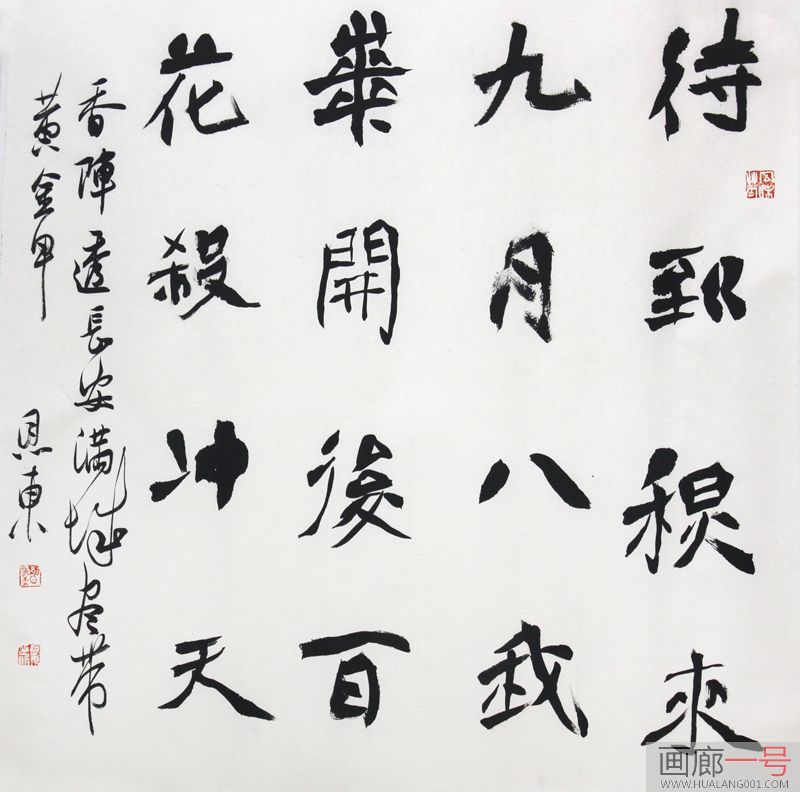 待到秋來
九月八我
華開後百
花殺冲天
香陣透長安满城尽带
黄金甲
恩東
画廊一号
WWW.HUALANG001.COM